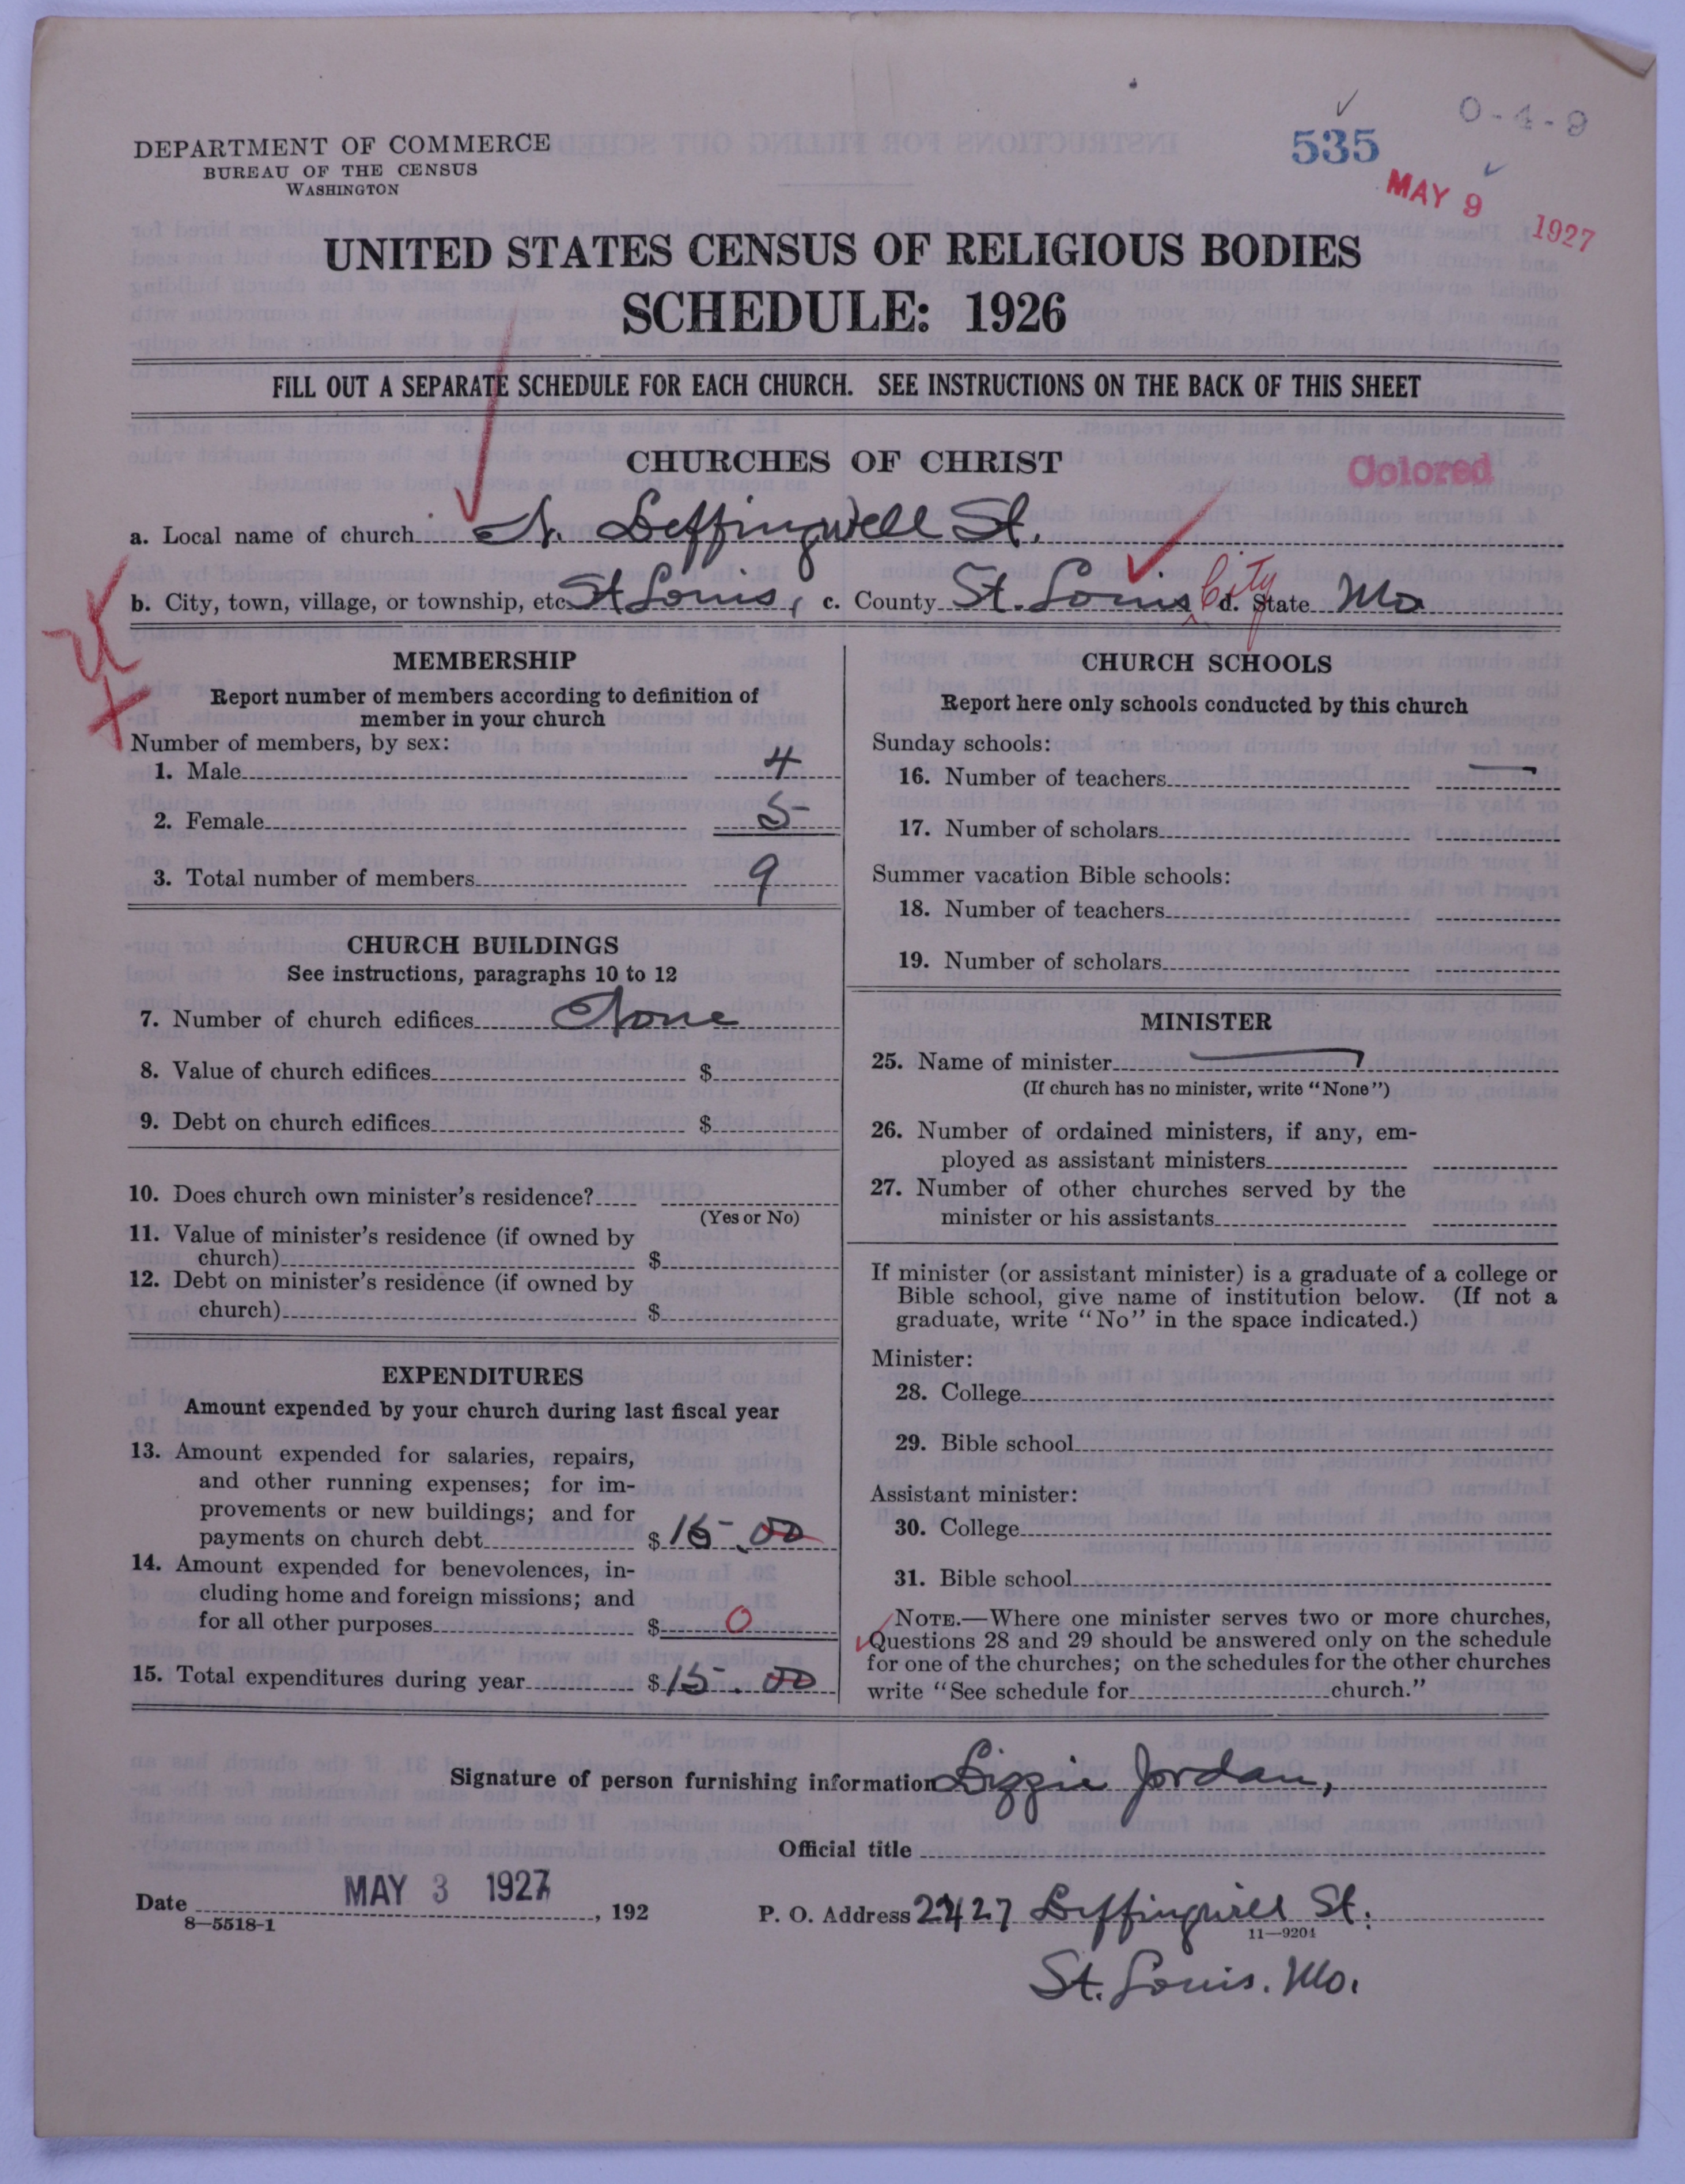 0-4-9
535
MAY 9 1927
DEPARTMENT OF COMMERCE
BUREAU OF THE CENSUS
WASHINGTON
UNITED STATES CENSUS OF RELIGIOUS BODIES
SCHEDULE: 1926
FILL OUT A SEPARATE SCHEDULE FOR EACH CHURCH. SEE INSTRUCTIONS ON THE BACK OF THIS SHEET
CHURCHES OF CHRIST
Colored
a. Local name of church N. Leffingwell St.
b. City, town, village, or township, etc. St Louis, c. County St. Louis City d. State Mo
MEMBERSHIP
Report number of members according to definition of
member in your church
Number of members, by sex:
1. Male 4
2. Female 5
3. Total number of members 9
CHURCH BUILDINGS
See instructions, paragraphs 10 to 12
7. Number of church edifices None
8. Value of church edifices $
9. Debt on church edifices $
10. Does church own minister's residence?
(Yes or No)
11. Value of minister's residence (if owned by
church) $
12. Debt on minister's residence (if owned by
church) $
EXPENDITURES
Amount expended by your church during last fiscal year
13. Amount expended for salaries, repairs,
and other running expenses; for im-
provements or new buildings; and for
payments on church debt $ 15.00
14. Amount expended for benevolences, in-
cluding home and foreign missions; and
for all other purposes $ 0
15. Total expenditures during year $ 15.00
CHURCH SCHOOLS
Report here only schools conducted by this church
Sunday schools:
16. Number of teachers —
17. Number of scholars
Summer vacation Bible schools:
18. Number of teachers
19. Number of scholars
MINISTER
25. Name of minister —
(If church has no minister, write "None")
26. Number of ordained ministers, if any, em-
ployed as assistant ministers
27. Number of other churches served by the
minister or his assistants
If minister (or assistant minister) is a graduate of a college or
Bible school, give name of institution below. (If not a
graduate, write "No" in the space indicated.)
Minister:
28. College
29. Bible school
Assistant minister:
30. College
31. Bible school
NOTE.—Where one minister serves two or more churches,
Questions 28 and 29 should be answered only on the schedule
for one of the churches; on the schedules for the other churches
write "See schedule for church."
Signature of person furnishing information Lizzie Jordan,
Official title
Date MAY 3 1927, 192
P. O. Address 2427 Leffingwell St.
8—5518-1
11—9204
St. Louis. Mo.